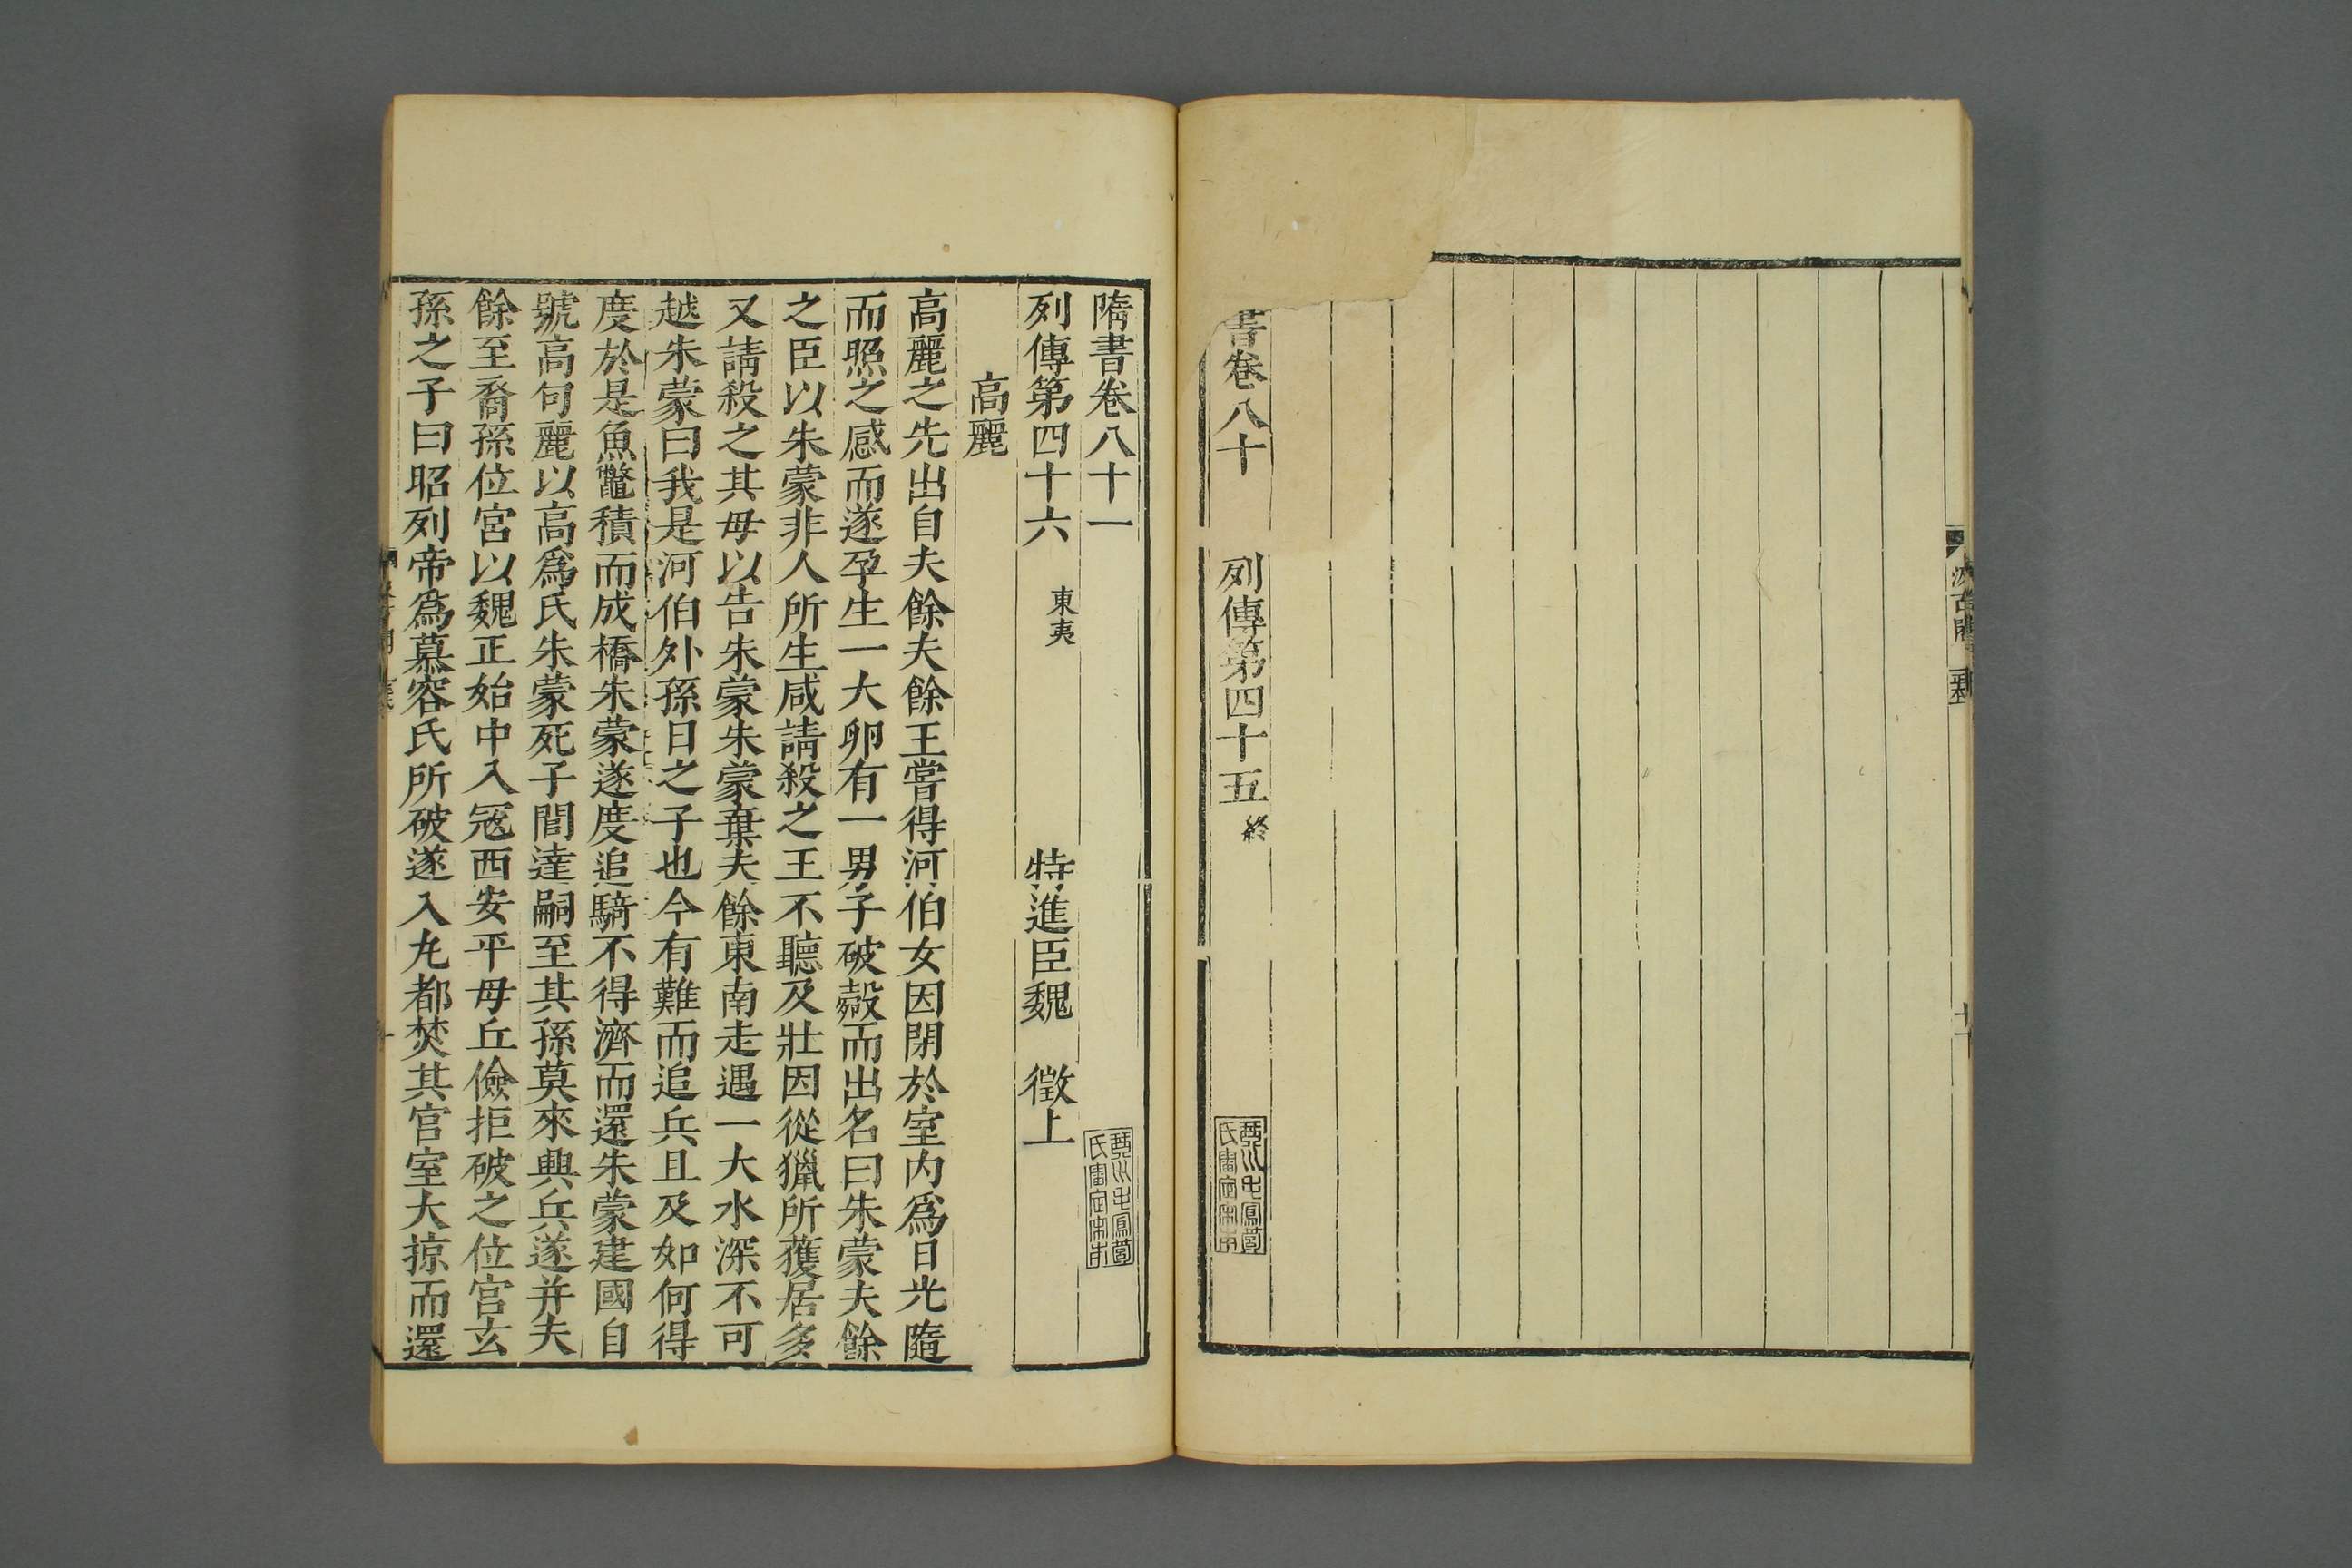 書卷八十 列傳第四十五 終
隋書卷八十一
列傳第四十六 東夷 特進臣魏 徵上
高麗
高麗之先出自夫餘夫餘王嘗得河伯女因閉於室内爲日光隨
而照之感而遂孕生一大卵有一男子破㲉而出名曰朱蒙夫餘
之臣以朱蒙非人所生咸請殺之王不聽及壯因從獵所獲居多
又請殺之其母以告朱蒙朱蒙棄夫餘東南走遇一大水深不可
越朱蒙曰我是河伯外孫日之子也今有難而追兵且及如何得
度於是魚鼈積而成橋朱蒙遂度追騎不得濟而還朱蒙建國自
號高句麗以高爲氏朱蒙死子閭達嗣至其孫莫來興兵遂并夫
餘至裔孫位宮以魏正始中入寇西安平毋丘儉拒破之位宮玄
孫之子曰昭列帝爲慕容氏所破遂入丸都焚其宮室大掠而還